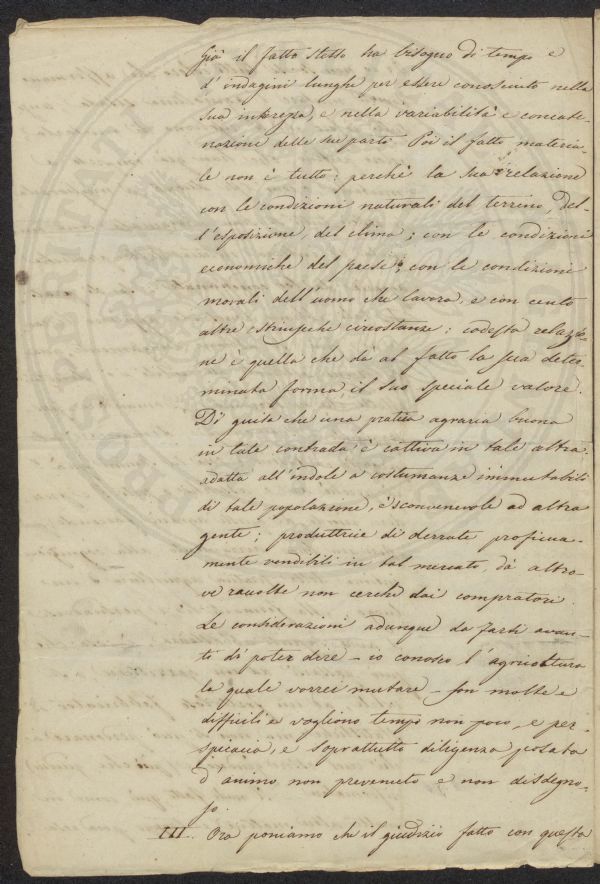 Già il fatto stesso ha bisogno di tempo e
d'indagini lunghe per essere conosciuto nella
sua interezza, e nella variabilità e concate-
nazione delle sue parti. Poi il fatto materia-
le non è tutto; perchè la sua relazione
con le condizioni naturali del terreno, del-
l'esposizione, del clima; con le condizioni
economiche del paese; con le condizioni
morali dell'uomo che lavora, e con cento
altre estrinseche circostanze; codesta relazio-
ne è quella che dà al fatto la sua deter-
minata forma, il suo speciale valore.
Di guisa che una pratica agraria buona
in tale contrada è cattiva in tale altra:
adatta all'indole a costumanze immutabili
di tale popolazione, è sconvenevole ad altra
gente; produttrice di derrate proficua-
mente vendibili in tal mercato, dà altro-
ve raccolte non cerche dai compratori.
Le considerazioni adunque da farsi avan-
ti di poter dire – io conosco l'agricoltura
la quale vorrei mutare – son molte e
difficili e vogliono tempo non poco, e per-
spicacia, e soprattutto diligenza posata
d'animo non prevenuto e non disdegno-
so.
III. Ora poniamo che il giudizio fatto con questa
PROSPERITATI